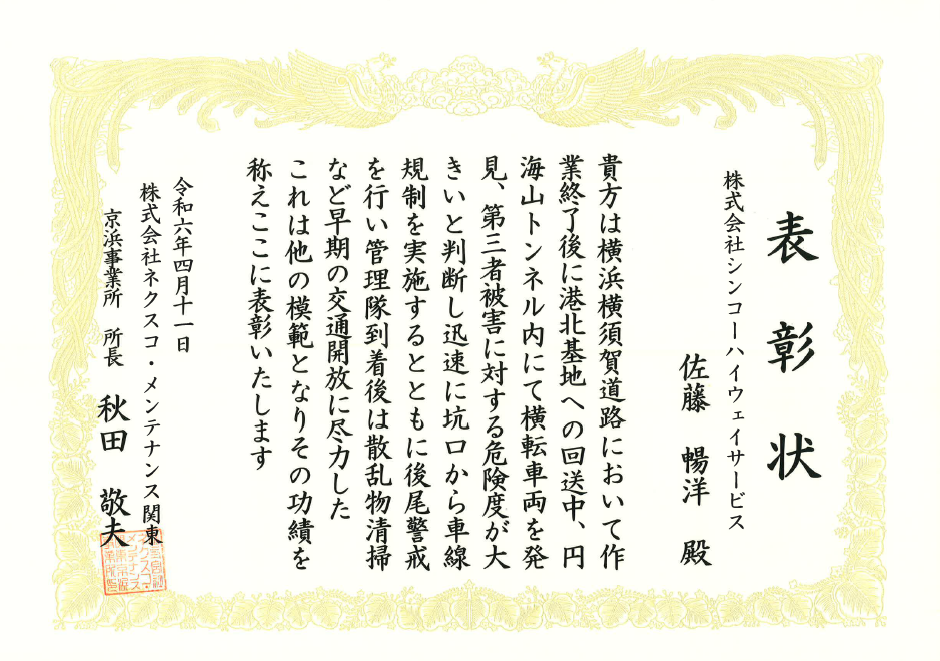 表彰状
株式会社シンコーハイウェイサービス
佐藤 暢洋 殿
貴方は横浜横須賀道路において作
業終了後に港北基地への回送中、円
海山トンネル内にて横転車両を発
見、第三者被害に対する危険度が大
きいと判断し迅速に坑口から車線
規制を実施するとともに後尾警戒
を行い管理隊到着後は散乱物清掃
など早期の交通開放に尽力した
これは他の模範となりその功績を
称えここに表彰いたします
令和六年四月十一日
株式会社ネクスコ・メンテナンス関東
京浜事業所 所長 秋田 敬夫